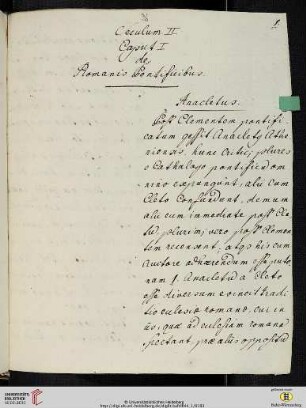 1.
Caeculum II
Caput I
de
Romanis Pontificibus.
Anacletus.
Post Clementem pontifi
catum gessit Anacletus Athe
niensis, hunc Critici plures
e Cathalogo pontificum om
nino expungunt, alii cum
Cleto confundunt, demum
alii eum immediate post Cle
tum, plurimi vero post Clemen
tem recensent, atque his cum
Auctore adhaerendum esse puto
nam S. Anacletum a Cleto
esse diversum evincit tradi
tio eclesiae romanae, cui, in
iis, quae ad eclesiam romanam
spectant prae aliis oppositum
UNIVERSITÄTS-BIBLIOTHEK HEIDELBERG
© Universitätsbibliothek Heidelberg